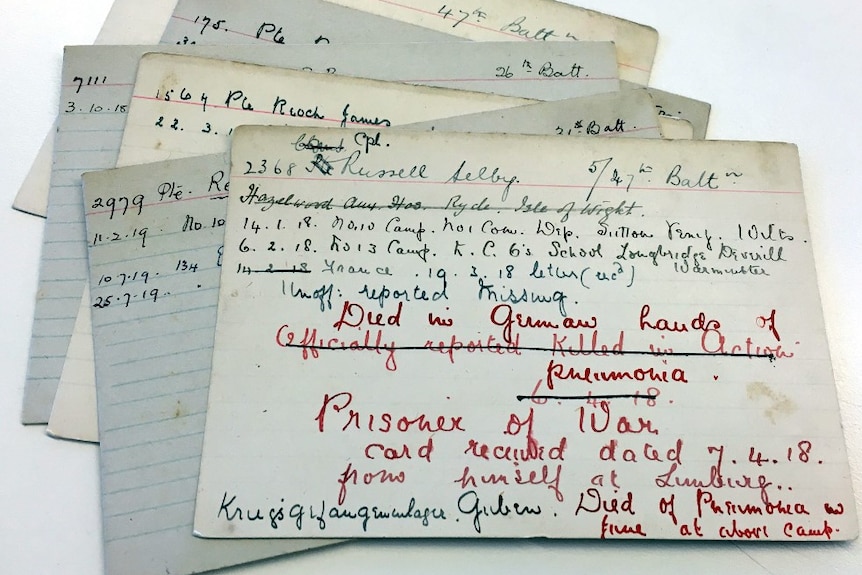 47th Battn
175. Pte
26th Batt.
7111
3.10.18
1564 Pte Rioch James
22. 3. 1
21st Batt.
2979 Pte. Re
11.2.19. No. 10
10.7.19. 134
25.7.19.
Cpl.
2368 Russell Selby. 5/47th Battn
Hazelwood Aux. Hos. Ryde. Isle of Wight.
14.1.18. No.10 Camp. No1 Com. Dep. Sutton Veny. Wilts.
6.2.18. No 13 Camp. K.C.6's School Longbridge Deverill
Warminster
14.2.18 France. 19.3.18 letter (recd)
Unoff: reported Missing.
Died in German hands of
Officially reported Killed in Action
pneumonia.
6.4.18.
Prisoner of War
card received dated 7.4.18.
from himself at Limburg..
Kriegsgefangenenlager. Guben. Died of Pneumonia in
June at above camp.